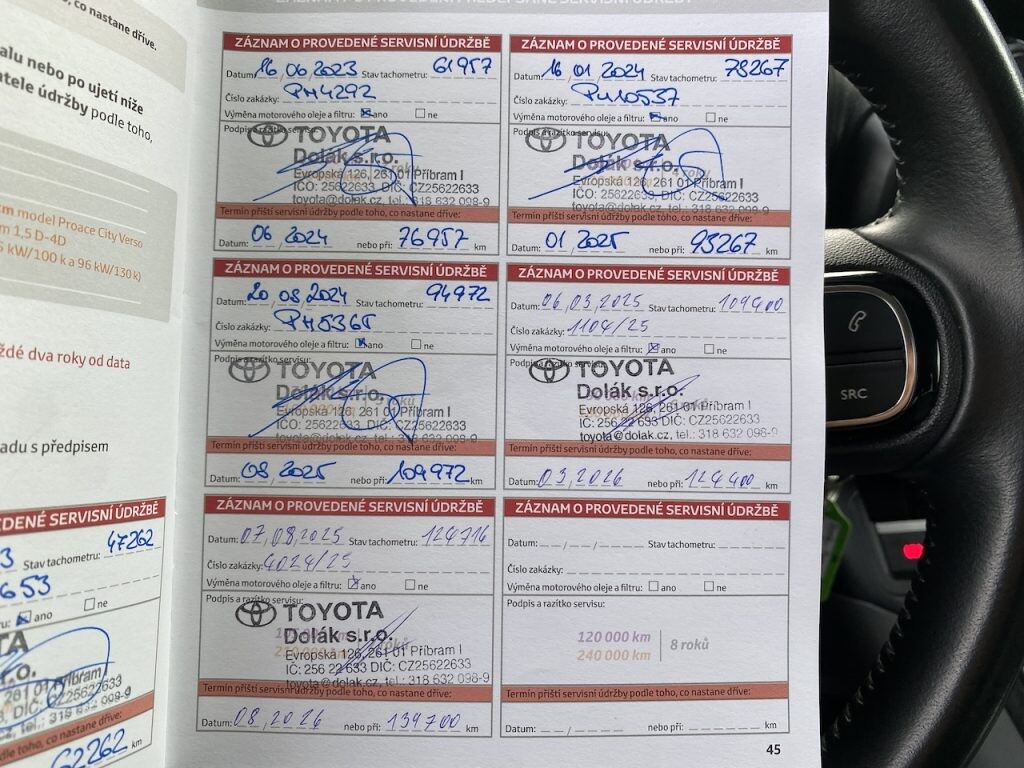 co nastane dříve.
alu nebo po ujetí níže
atele údržby podle toho,
m model Proace City Verso
m 1.5 D-4D
kW/100 k a 96 kW/130 k)
ždé dva roky od data
adu s předpisem
DENÉ SERVISNÍ ÚDRŽBĚ
3 Stav tachometru: 47262
653
ano ne
TA
r.o.
261 01 Příbram I
DIČ: CZ25622633
cz, tel.: 318 632 098-9
e toho, co nastane dříve:
62262 km
ZÁZNAM O PROVEDENÉ SERVISNÍ ÚDRŽBĚ
Datum: 16,06,2023 Stav tachometru: 61957
Číslo zakázky: PM4292
Výměna motorového oleje a filtru: ano ne
Podpis a razítko servisu:
TOYOTA
Dolák s.r.o.
Evropská 126, 261 01 Příbram I
IČO: 25622633, DIČ: CZ25622633
toyota@dolak.cz, tel.: 318 632 098-9
Termín příští servisní údržby podle toho, co nastane dříve:
Datum: 06 2024 nebo při: 76957 km
ZÁZNAM O PROVEDENÉ SERVISNÍ ÚDRŽBĚ
Datum: 16 01 2024 Stav tachometru: 78267
Číslo zakázky:
Výměna motorového oleje a filtru: ano ne
Podpis a razítko servisu:
TOYOTA
Dolák s.r.o.
Evropská 126, 261 01 Příbram I
IČO: 25622633, DIČ: CZ25622633
toyota@dolak.cz, tel.: 318 632 098-9
Termín příští servisní údržby podle toho, co nastane dříve:
Datum: 01 2025 nebo při: 93267 km
ZÁZNAM O PROVEDENÉ SERVISNÍ ÚDRŽBĚ
Datum: 20 08 2024 Stav tachometru: 94972
Číslo zakázky: PM5365
Výměna motorového oleje a filtru: ano ne
Podpis a razítko servisu:
TOYOTA
Dolák s.r.o.
Evropská 126, 261 01 Příbram I
IČO: 25622633, DIČ: CZ25622633
toyota@dolak.cz, tel.: 318 632 098-9
Termín příští servisní údržby podle toho, co nastane dříve:
Datum: 08 2025 nebo při: 109972 km
ZÁZNAM O PROVEDENÉ SERVISNÍ ÚDRŽBĚ
Datum: 06,03,2025 Stav tachometru: 109400
Číslo zakázky: 1104/25
Výměna motorového oleje a filtru: ano ne
Podpis a razítko servisu:
TOYOTA
Dolák s.r.o.
Evropská 126, 261 01 Příbram I
IČ: 256 22 633 DIČ: CZ25622633
toyota@dolak.cz, tel.: 318 632 098-9
Termín příští servisní údržby podle toho, co nastane dříve:
Datum: 03,2026 nebo při: 124400 km
ZÁZNAM O PROVEDENÉ SERVISNÍ ÚDRŽBĚ
Datum: 07,08,2025 Stav tachometru:
Číslo zakázky: 4024/25
Výměna motorového oleje a filtru: ano ne
Podpis a razítko servisu:
TOYOTA
Dolák s.r.o.
Evropská 126, 261 01 Příbram I
IČ: 256 22 633 DIČ: CZ25622633
toyota@dolak.cz, tel.: 318 632 098-9
Termín příští servisní údržby podle toho, co nastane dříve:
Datum: 08,2026 nebo při: 139700 km
ZÁZNAM O PROVEDENÉ SERVISNÍ ÚDRŽBĚ
Datum: Stav tachometru:
Číslo zakázky:
Výměna motorového oleje a filtru: ano ne
Podpis a razítko servisu:
120 000 km
240 000 km
8 roků
Termín příští servisní údržby podle toho, co nastane dříve:
Datum: nebo při: km
45
SRC